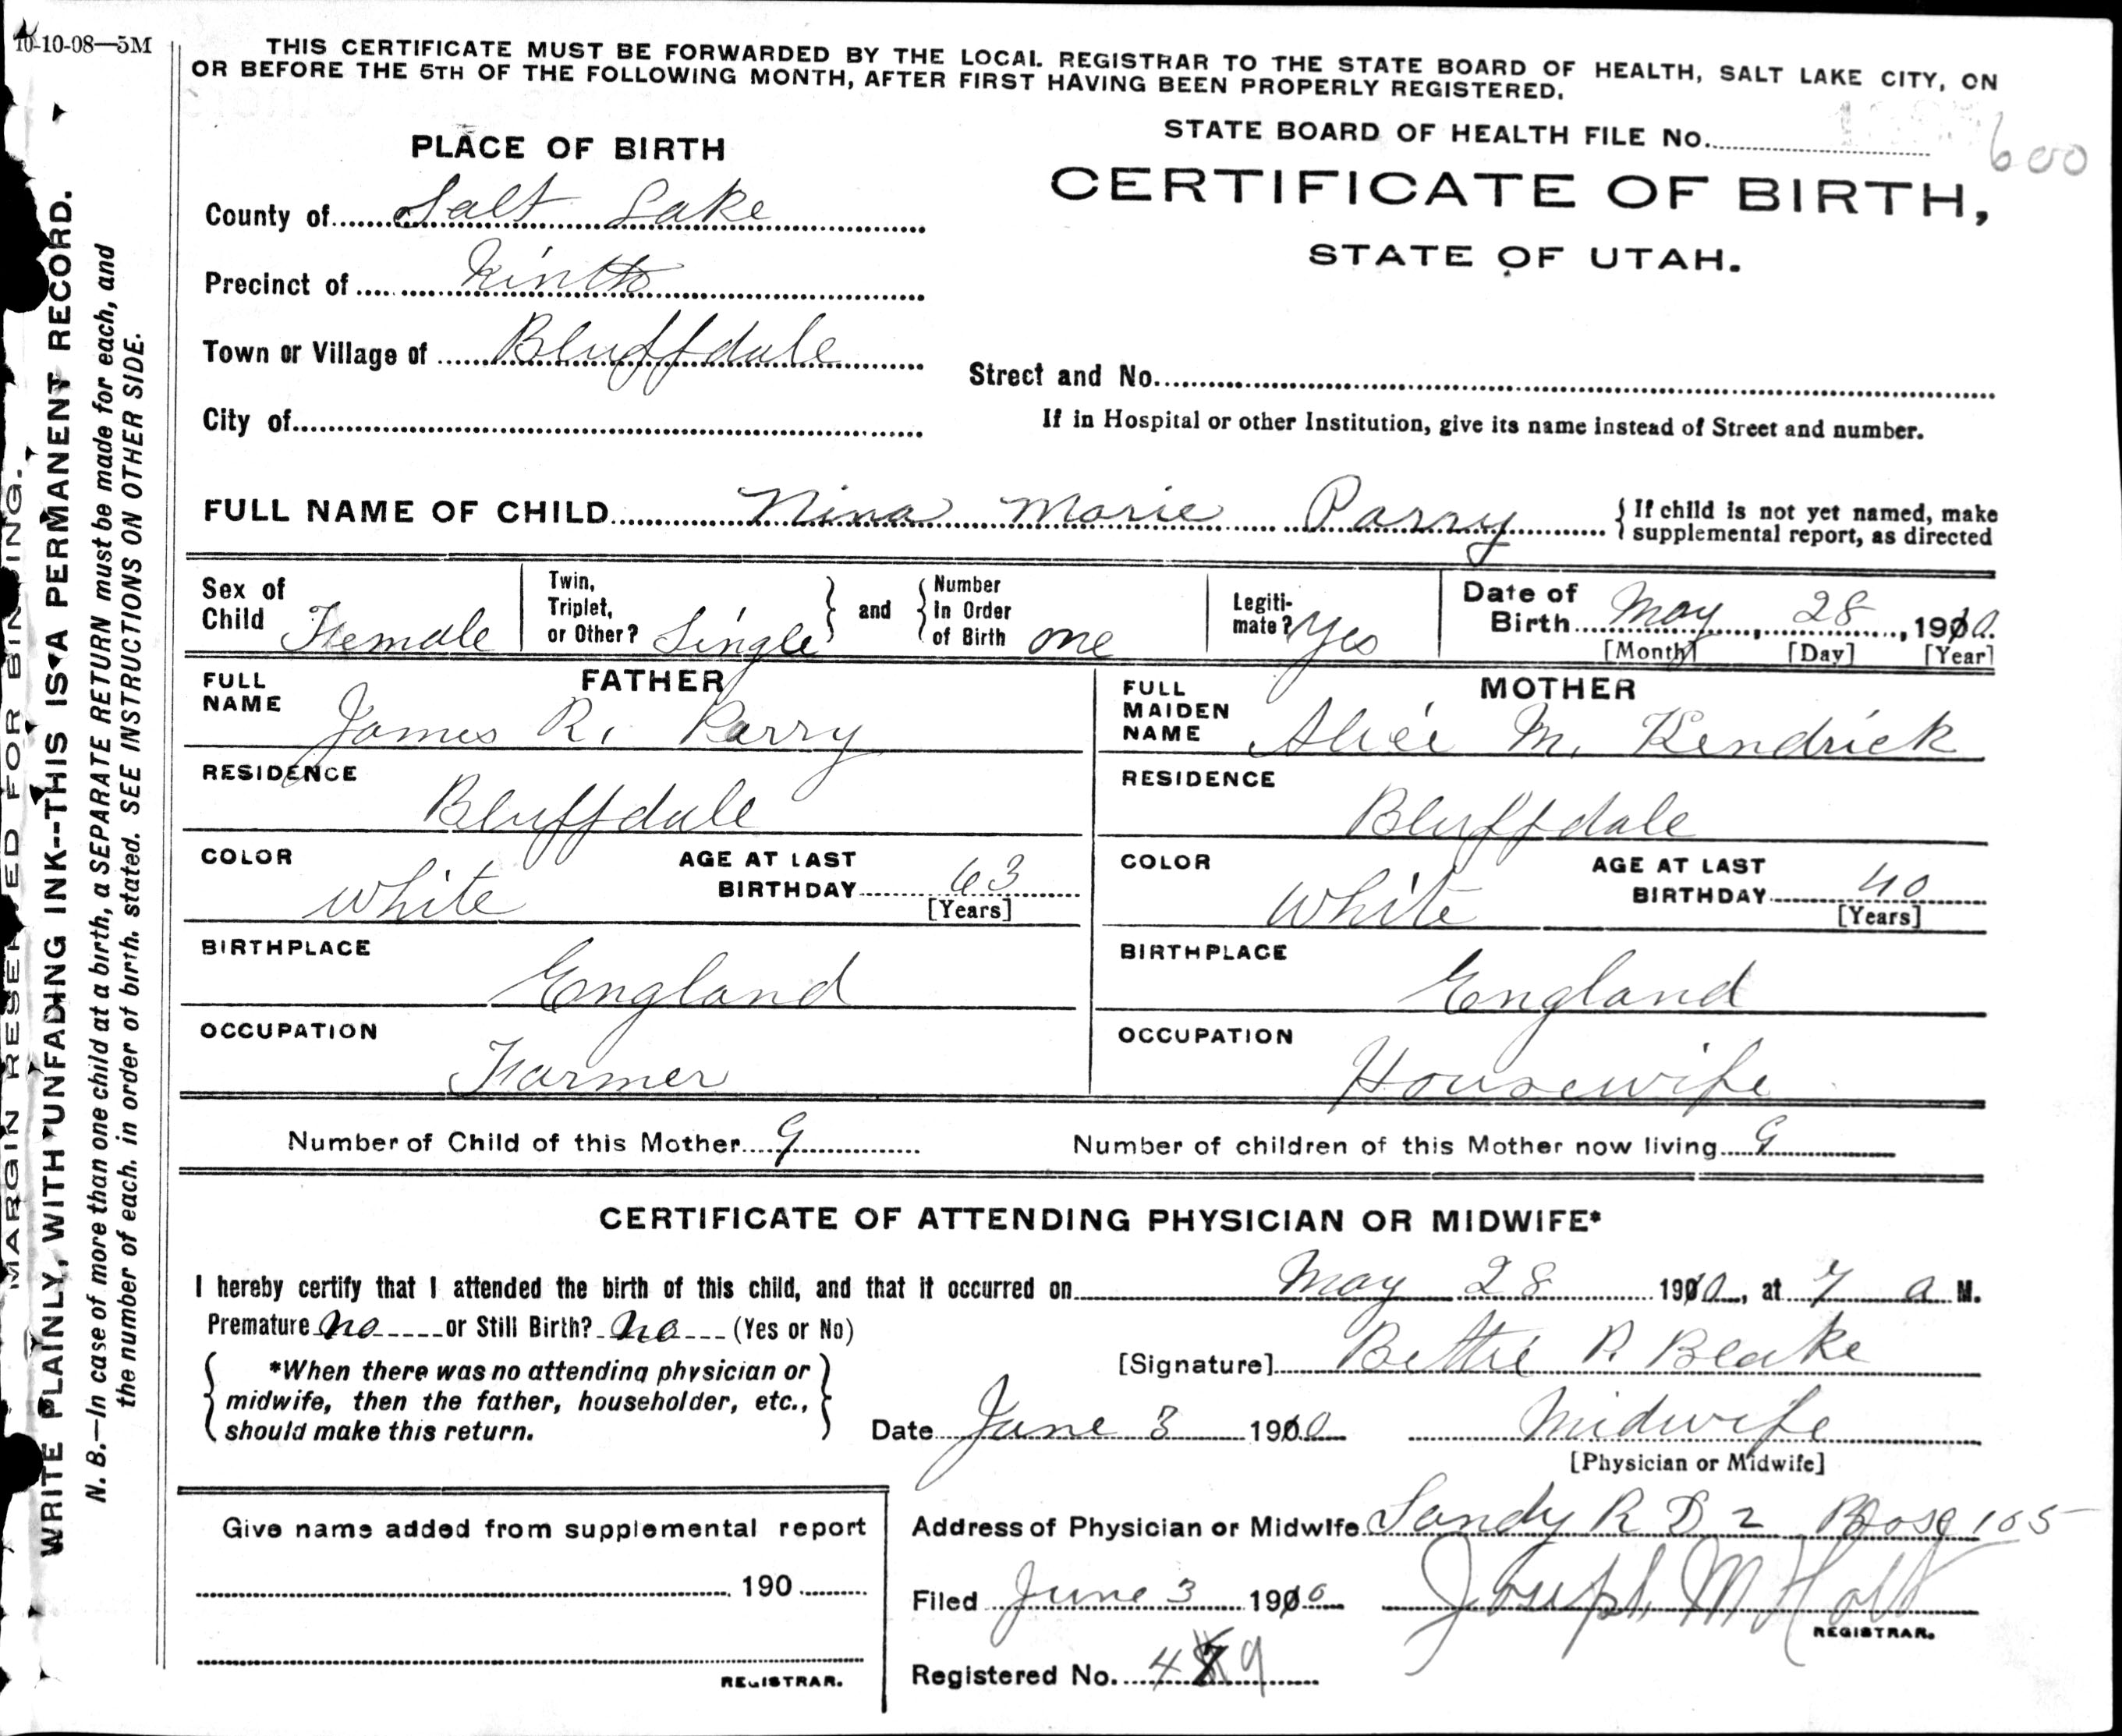 10-10-08—5M
THIS CERTIFICATE MUST BE FORWARDED BY THE LOCAL REGISTRAR TO THE STATE BOARD OF HEALTH, SALT LAKE CITY, ON
OR BEFORE THE 5TH OF THE FOLLOWING MONTH, AFTER FIRST HAVING BEEN PROPERLY REGISTERED.
STATE BOARD OF HEALTH FILE NO. 600
CERTIFICATE OF BIRTH,
STATE OF UTAH.
PLACE OF BIRTH
County of Salt Lake
Precinct of Ninth
Town or Village of Bluffdale
Street and No.
City of
If in Hospital or other Institution, give its name instead of Street and number.
FULL NAME OF CHILD Nina Marie Parry
{ If child is not yet named, make
supplemental report, as directed
Sex of Child Female
Twin, Triplet, or Other? Single } and { Number in Order of Birth one
Legiti-mate? Yes
Date of Birth May, 28, 1910.
[Month] [Day] [Year]
FATHER
FULL NAME James R. Parry
RESIDENCE Bluffdale
COLOR White
AGE AT LAST BIRTHDAY 63
[Years]
BIRTHPLACE England
OCCUPATION Farmer
MOTHER
FULL MAIDEN NAME Alice M. Kendrick
RESIDENCE Bluffdale
COLOR White
AGE AT LAST BIRTHDAY 40
[Years]
BIRTHPLACE England
OCCUPATION Housewife
Number of Child of this Mother 9
Number of children of this Mother now living 9
CERTIFICATE OF ATTENDING PHYSICIAN OR MIDWIFE*
I hereby certify that I attended the birth of this child, and that it occurred on May 28 1910, at 7 a M.
Premature no or Still Birth? no (Yes or No)
{ *When there was no attending physician or
midwife, then the father, householder, etc.,
should make this return. }
[Signature] Bettie P. Blake
Date June 3 1910
Midwife
[Physician or Midwife]
Address of Physician or Midwife Sandy R D 2 Box 105
Filed June 3 1910
Joseph M Holt
REGISTRAR.
Registered No. 49
Give name added from supplemental report
190
REGISTRAR.
MARGIN RESERVED FOR BINDING.
WRITE PLAINLY, WITH UNFADING INK--THIS IS A PERMANENT RECORD.
N. B.—In case of more than one child at a birth, a SEPARATE RETURN must be made for each, and
the number of each, in order of birth, stated. SEE INSTRUCTIONS ON OTHER SIDE.